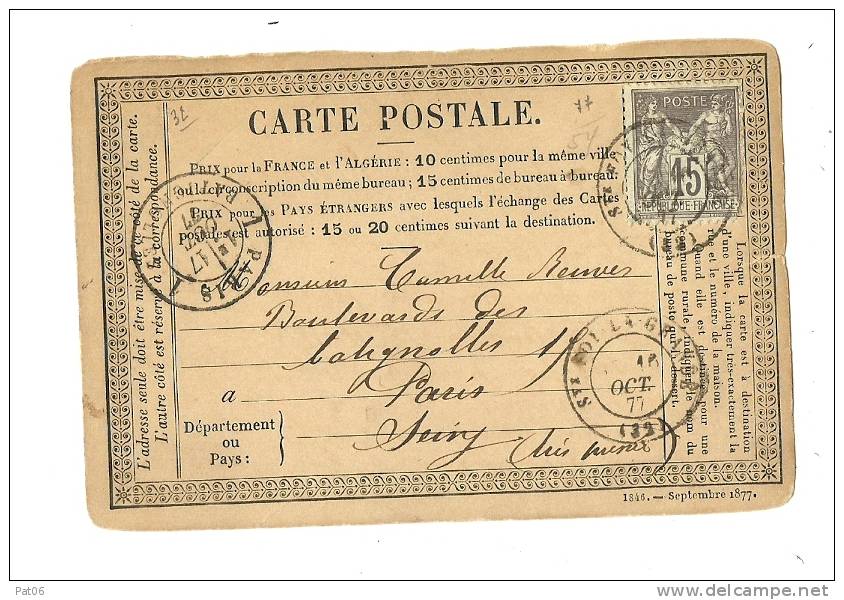 CARTE POSTALE.
PRIX pour la FRANCE et l'ALGÉRIE : 10 centimes pour la même ville
ou la circonscription du même bureau ; 15 centimes de bureau à bureau.
PRIX pour les PAYS ÉTRANGERS avec lesquels l'échange des Cartes
postales est autorisé : 15 ou 20 centimes suivant la destination.
Monsieur Camille
Boulevards des
Batignolles
a Paris
Département
ou
Pays :
Seine
très pressée
L'adresse seule doit être mise de ce côté de la carte.
L'autre côté est réservé à la correspondance.
Lorsque la carte est à destination
d'une ville, indiquer très-exactement la
rue et le numéro de la maison.
Quand elle est destinée pour une
commune rurale, indiquer le nom du
bureau de poste qui la dessert.
POSTE
15
REPUBLIQUE FRANÇAISE
PARIS
STE FOY-LA-GRANDE
16
OCT.
77
(32)
1846. — Septembre 1877.
Pat06
http://www.delcampe.net